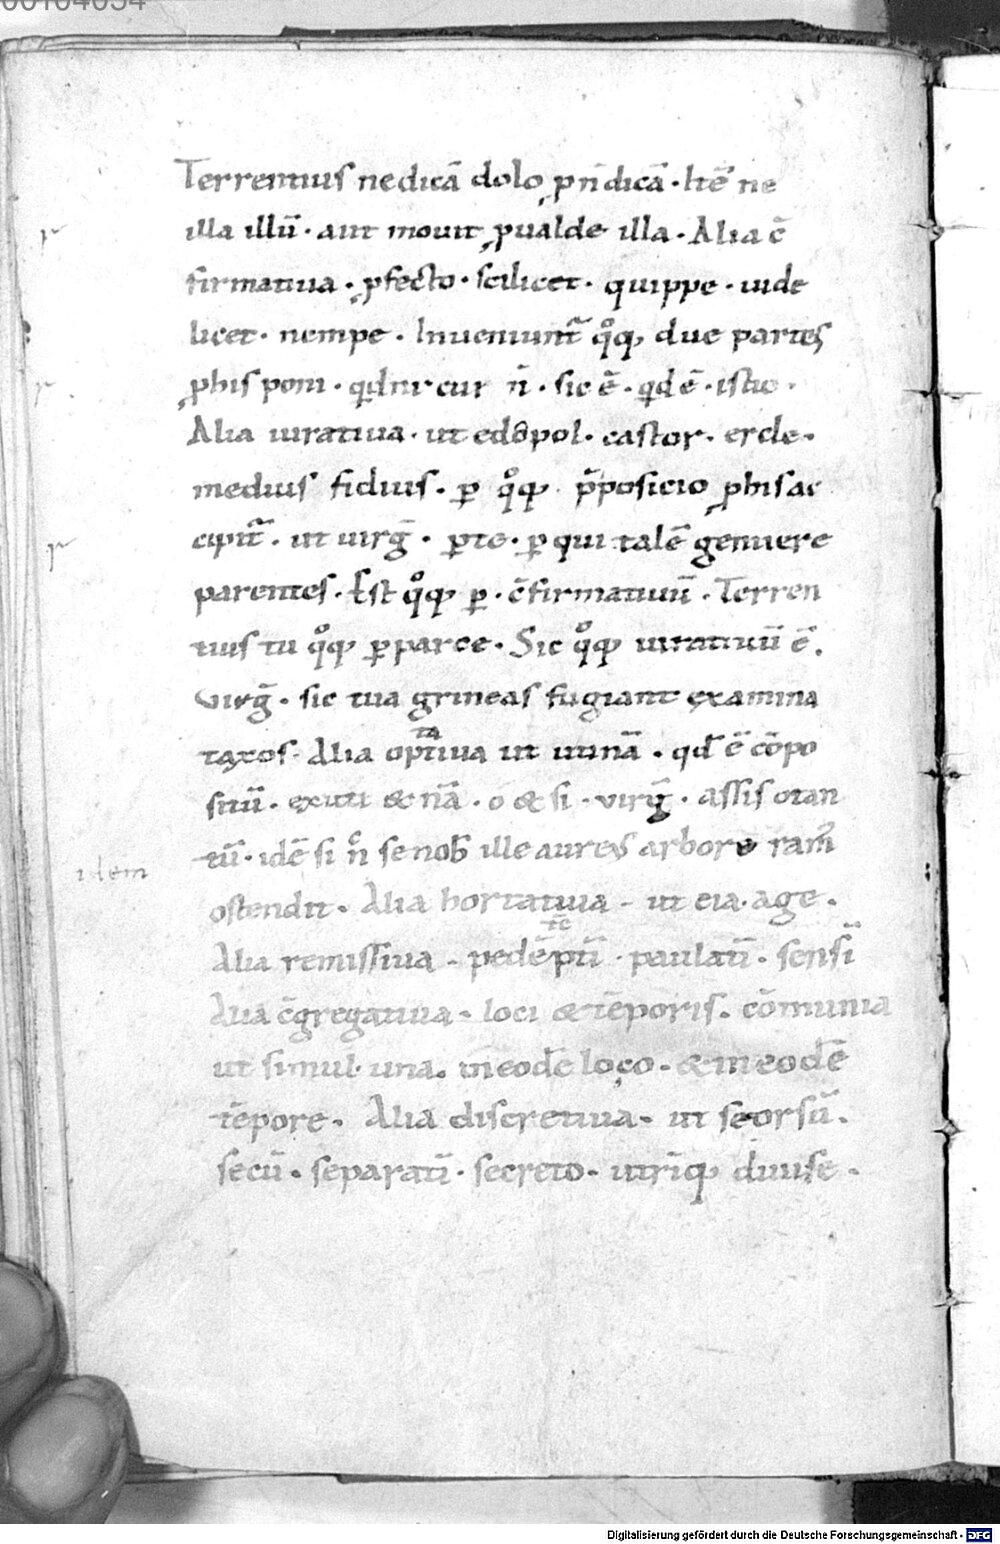 00104054
Terrentius ne dicā dolo ꝓ n̄ dicā · Itē ne
illa illū · aut mouit ꝓ ualde illa · Alia c̄
firmatiua · ꝓfecto · scilicet · quippe · uide
licet · nempe · Inueniunt̄ qͦꝗ due partes
ꝓ his poni · qdni cur n̄ · sic ē · qd ē · istic ·
Alia iuratiua · ut edepol · castor · ercle ·
medius fidius · ꝑ qͦꝗ p̄posicio ꝓ his ac
cipit̄ · ut uirḡ · ꝑte · ꝑ qui talē genuere
parentes · Est qͦꝗ ꝑ · c̄firmatiuū · Terren
tius tu qͦꝗ ꝑparce · Sic qͦꝗ iuratiuū ē ·
virḡ · sic tua grineas fugiant examina
taxos · Alia optiua ut utinā · qd̄ ē cōpo
ta
sitū · ex uti & nā · o & si · virḡ · assis o tan
tū · idē si n̄c se nob̄ ille aureus arbore ram̄
idem
ostendit · Alia hortatiua · ut eia · age ·
Alia remissiua · pedēptī · paulatī · sensī
tē
Alia c̄gregatiua · loci & tēporis · cōmunia
ut simul · una · in eodē loco · & in eodē
tēpore · Alia discretiua · ut seorsū ·
secū · separatī · secreto · utrīꝗ diuise ·
Digitalisierung gefördert durch die Deutsche Forschungsgemeinschaft - DFG